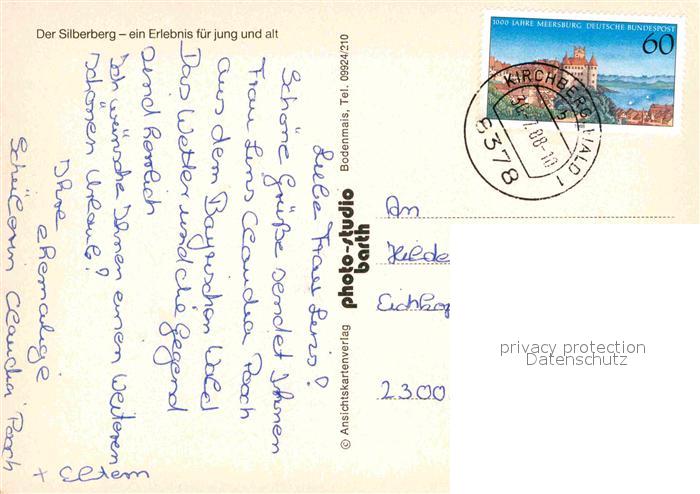 Der Silberberg – ein Erlebnis für jung und alt
1000 JAHRE MEERSBURG DEUTSCHE BUNDESPOST
60
KIRCHBERG, WALD 1
88-10
8378
Liebe Frau Lens!
Schöne Grüße sendet Ihnen
Frau Lens Claudia Paach
aus dem Bayrischen Wald
Das Wetter und die Gegend
sind herrlich
Ich wünsche Ihnen einen Weiteren
schönen Urlaub!
Ihre
ehemalige
Schülerin Claudia Paach
+ Eltern
© Ansichtskartenverlag photo-studio barth Bodenmais, Tel. 09924/210
An
Hilde
2300
privacy protection
Datenschutz